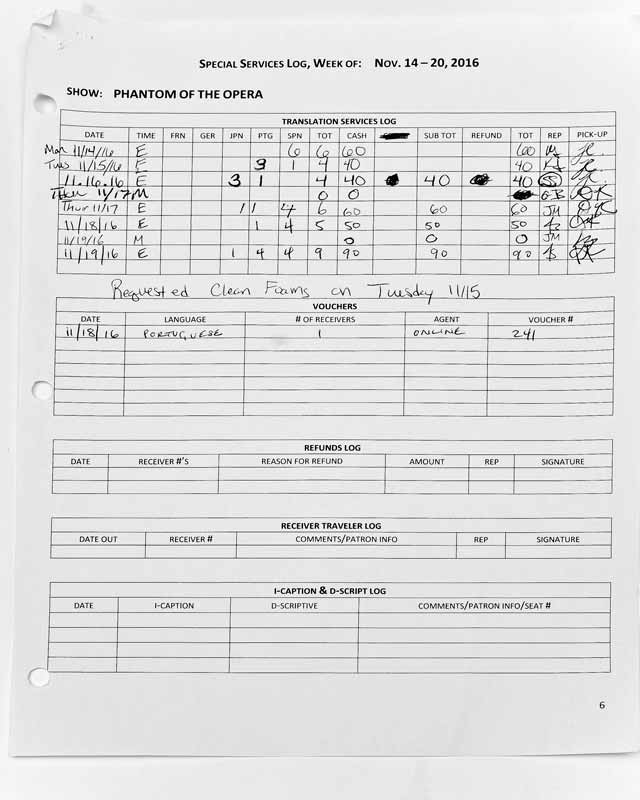 SPECIAL SERVICES LOG, WEEK OF: NOV. 14 – 20, 2016
SHOW: PHANTOM OF THE OPERA
TRANSLATION SERVICES LOG
DATE TIME FRN GER JPN PTG SPN TOT CASH SUB TOT REFUND TOT REP PICK-UP
Mon 11/14/16 E 6 6 60 60
Tues 11/15/16 E 3 1 4 40 40 KJ
11.16.16 E 3 1 4 40 40 40 SS
Thur 11/17 M 0 0 GB
Thur 11/17 E 1 1 4 6 60 60 60 JM
11/18/16 E 1 4 5 50 50 50
11/19/16 M 0 0 0 JM
11/19/16 E 1 4 4 9 90 90 90
Requested Clean Foams on Tuesday 11/15
VOUCHERS
DATE LANGUAGE # OF RECEIVERS AGENT VOUCHER #
11/18/16 PORTUGUESE 1 ONLINE 241
REFUNDS LOG
DATE RECEIVER #'S REASON FOR REFUND AMOUNT REP SIGNATURE
RECEIVER TRAVELER LOG
DATE OUT RECEIVER # COMMENTS/PATRON INFO REP SIGNATURE
I-CAPTION & D-SCRIPT LOG
DATE I-CAPTION D-SCRIPTIVE COMMENTS/PATRON INFO/SEAT #
6